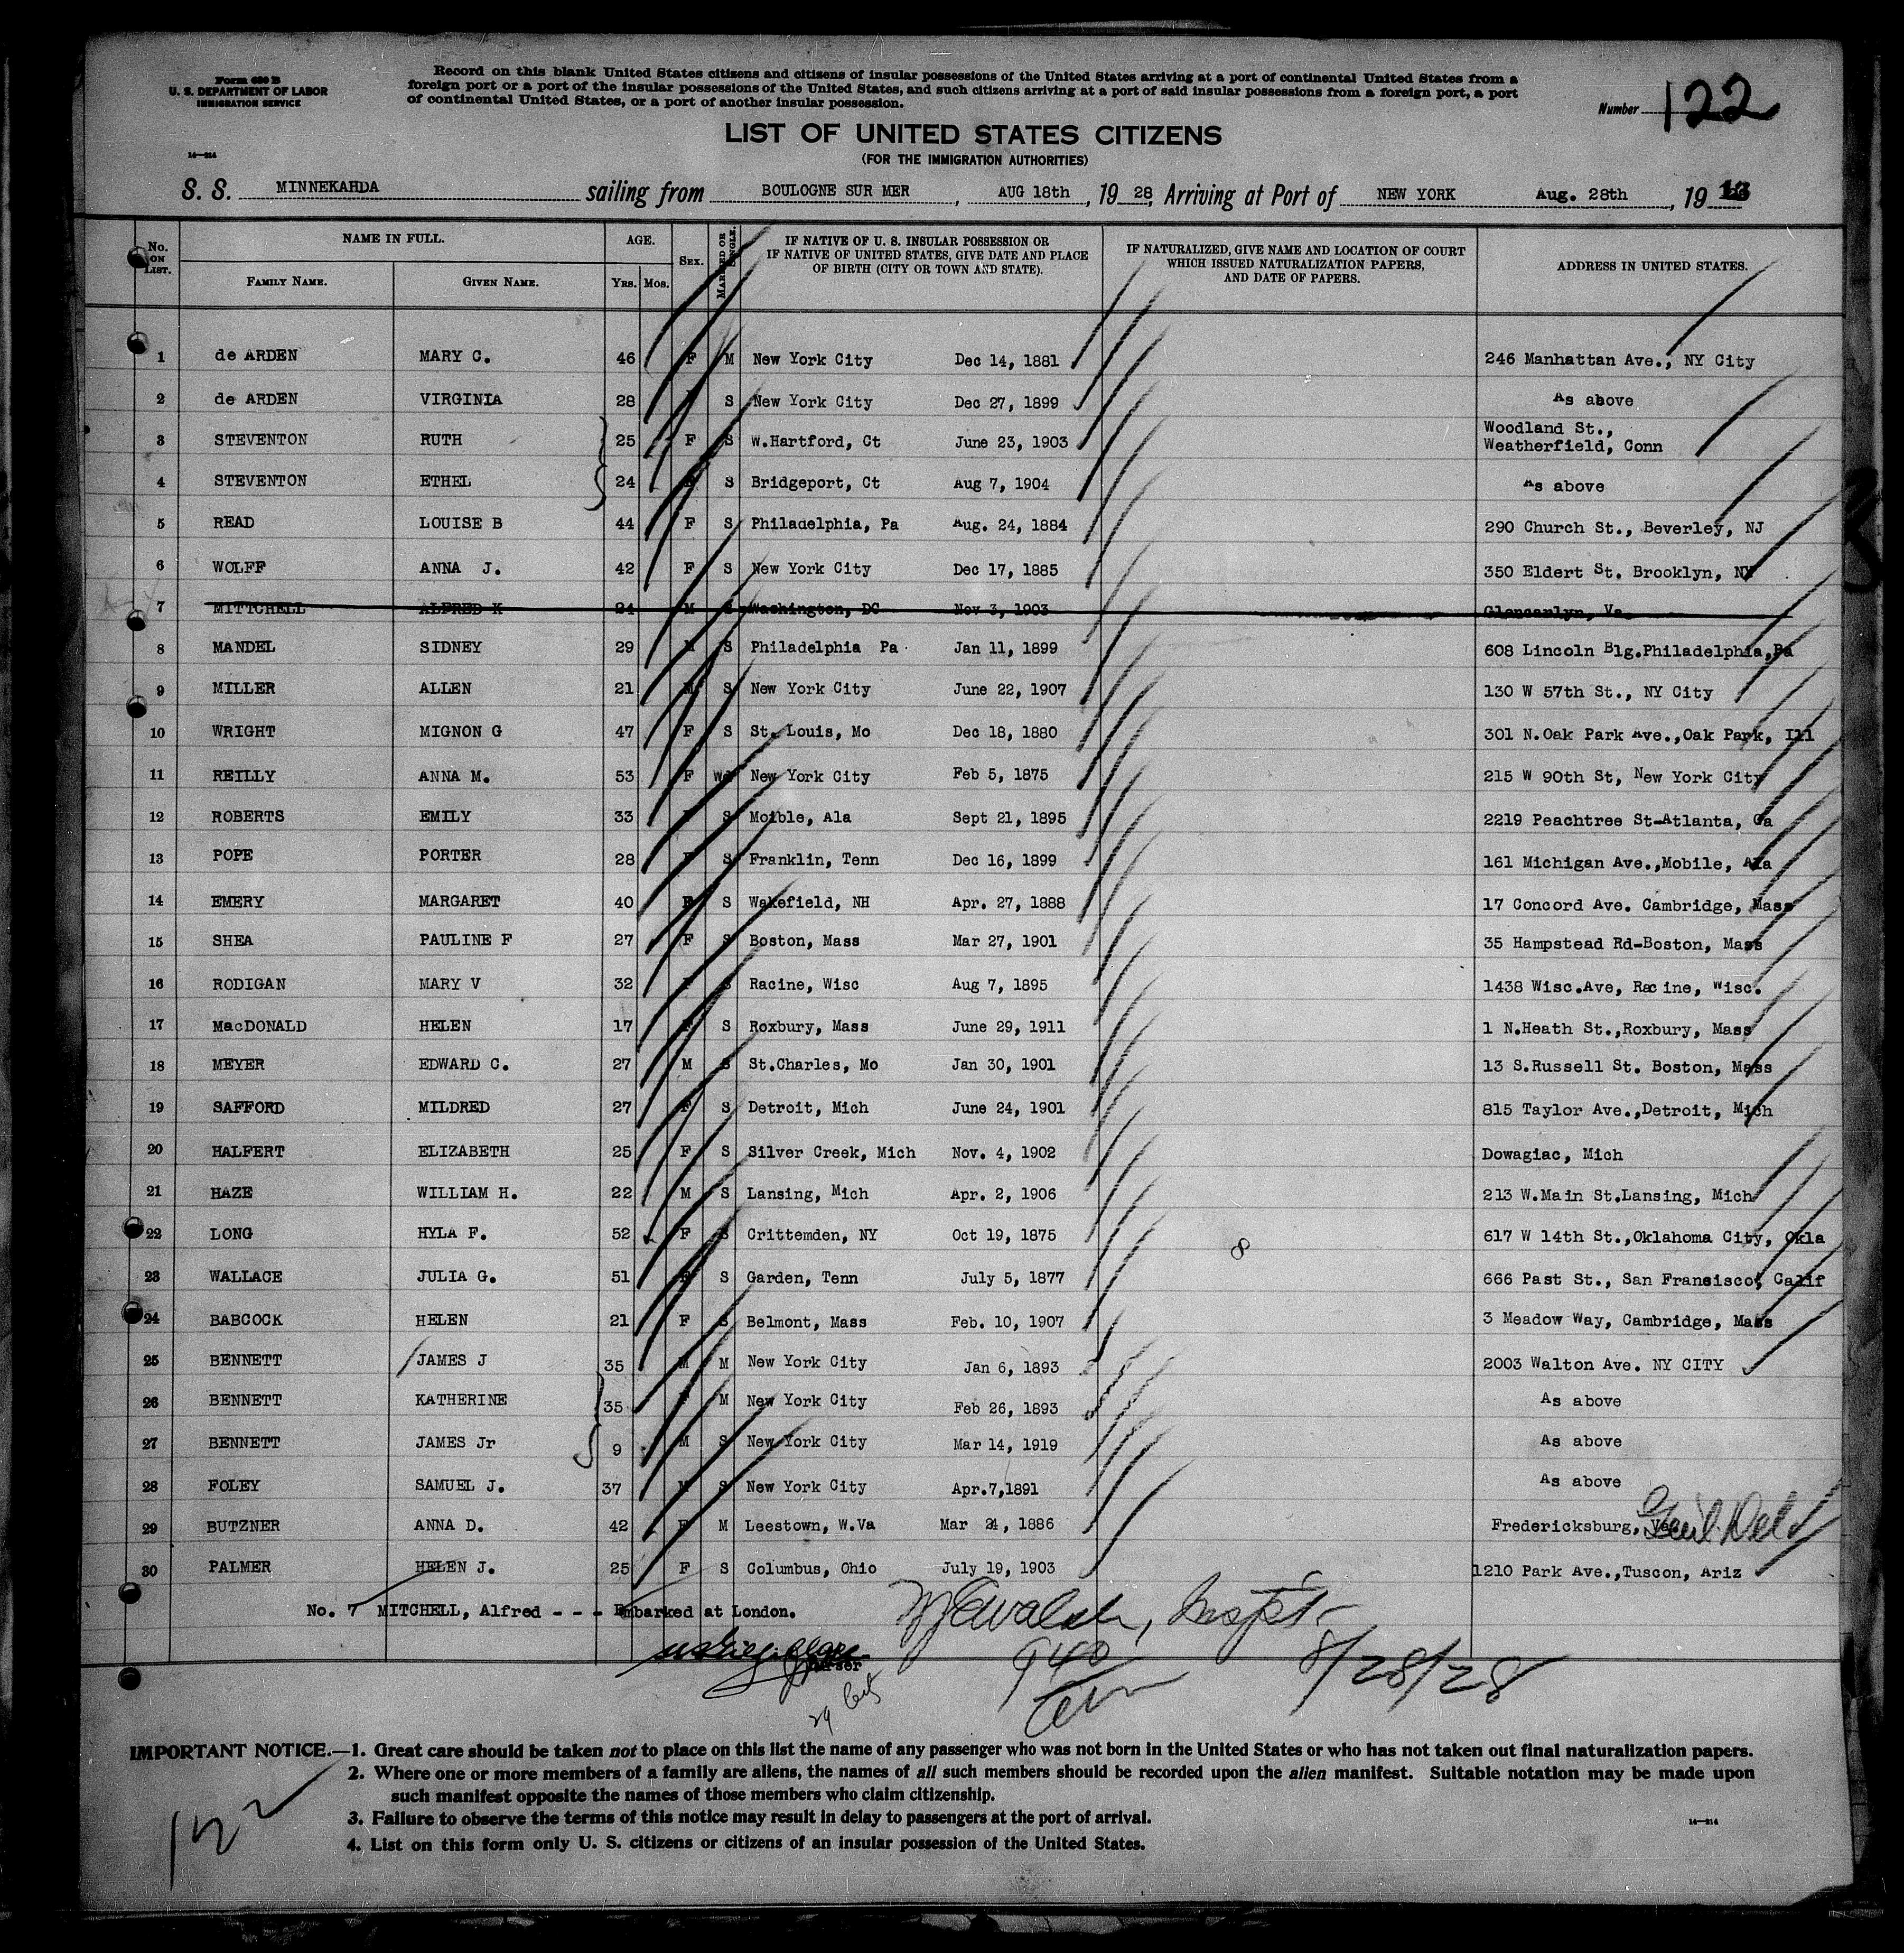 Form 630 B
U. S. DEPARTMENT OF LABOR
IMMIGRATION SERVICE
14—214
Record on this blank United States citizens and citizens of insular possessions of the United States arriving at a port of continental United States from a
foreign port or a port of the insular possessions of the United States, and such citizens arriving at a port of said insular possessions from a foreign port, a port
of continental United States, or a port of another insular possession.
Number 122
LIST OF UNITED STATES CITIZENS
(FOR THE IMMIGRATION AUTHORITIES)
S. S. MINNEKAHDA sailing from BOULOGNE SUR MER, AUG 18th, 19 28, Arriving at Port of NEW YORK Aug. 28th, 19
No. ON LIST. NAME IN FULL. FAMILY NAME. GIVEN NAME. AGE. Yrs. Mos. SEX. MARRIED OR SINGLE. IF NATIVE OF U. S. INSULAR POSSESSION OR IF NATIVE OF UNITED STATES, GIVE DATE AND PLACE OF BIRTH (CITY OR TOWN AND STATE). IF NATURALIZED, GIVE NAME AND LOCATION OF COURT WHICH ISSUED NATURALIZATION PAPERS, AND DATE OF PAPERS. ADDRESS IN UNITED STATES.
1 de ARDEN MARY C. 46 F M New York City Dec 14, 1881 246 Manhattan Ave., NY City
2 de ARDEN VIRGINIA 28 S New York City Dec 27, 1899 As above
3 STEVENTON RUTH 25 F S W.Hartford, Ct June 23, 1903 Woodland St., Weatherfield, Conn
4 STEVENTON ETHEL 24 S Bridgeport, Ct Aug 7, 1904 As above
5 READ LOUISE B 44 F S Philadelphia, Pa Aug. 24, 1884 290 Church St., Beverley, NJ
6 WOLFF ANNA J. 42 F S New York City Dec 17, 1885 350 Eldert St. Brooklyn, NY
7 MITTCHELL ALFRED K 24 M S Washington, DC Nov 3, 1903 Glencarlyn, Va
8 MANDEL SIDNEY 29 M S Philadelphia Pa Jan 11, 1899 608 Lincoln Blg.Philadelphia,Pa
9 MILLER ALLEN 21 M S New York City June 22, 1907 130 W 57th St., NY City
10 WRIGHT MIGNON G 47 F S St. Louis, Mo Dec 18, 1880 301 N.Oak Park Ave.,Oak Park, Ill
11 REILLY ANNA M. 53 F Wd New York City Feb 5, 1875 215 W 90th St, New York City
12 ROBERTS EMILY 33 S Moible, Ala Sept 21, 1895 2219 Peachtree St-Atlanta, Ga
13 POPE PORTER 28 F S Franklin, Tenn Dec 16, 1899 161 Michigan Ave.,Mobile, Ala
14 EMERY MARGARET 40 F S Wakefield, NH Apr. 27, 1888 17 Concord Ave. Cambridge, Mass
15 SHEA PAULINE F 27 F S Boston, Mass Mar 27, 1901 35 Hampstead Rd-Boston, Mass
16 RODIGAN MARY V 32 F S Racine, Wisc Aug 7, 1895 1438 Wisc.Ave, Racine, Wisc.
17 MacDONALD HELEN 17 F S Roxbury, Mass June 29, 1911 1 N.Heath St.,Roxbury, Mass
18 MEYER EDWARD C. 27 M S St.Charles, Mo Jan 30, 1901 13 S.Russell St. Boston, Mass
19 SAFFORD MILDRED 27 F S Detroit, Mich June 24, 1901 815 Taylor Ave.,Detroit, Mich
20 HALFERT ELIZABETH 25 F S Silver Creek, Mich Nov. 4, 1902 Dowagiac, Mich
21 HAZE WILLIAM H. 22 M S Lansing, Mich Apr. 2, 1906 213 W.Main St.Lansing, Mich
22 LONG HYLA F. 52 F S Crittemden, NY Oct 19, 1875 617 W 14th St.,Oklahoma City, Okla
23 WALLACE JULIA G. 51 F S Garden, Tenn July 5, 1877 666 Past St., San Fransisco, Calif
24 BABCOCK HELEN 21 F S Belmont, Mass Feb. 10, 1907 3 Meadow Way, Cambridge, Mass
25 BENNETT JAMES J 35 M M New York City Jan 6, 1893 2003 Walton Ave. NY CITY
26 BENNETT KATHERINE 35 F M New York City Feb 26, 1893 As above
27 BENNETT JAMES Jr 9 M S New York City Mar 14, 1919 As above
28 FOLEY SAMUEL J. 37 M S New York City Apr.7,1891 As above
29 BUTZNER ANNA D. 42 F M Leestown, W.Va Mar 24, 1886 Fredericksburg, Va
30 PALMER HELEN J. 25 F S Columbus, Ohio July 19, 1903 1210 Park Ave.,Tuscon, Ariz
No. 7 MITCHELL, Alfred - - - Embarked at London.
Inspt.
Purser
940
8/28/28
IMPORTANT NOTICE.—1. Great care should be taken not to place on this list the name of any passenger who was not born in the United States or who has not taken out final naturalization papers.
2. Where one or more members of a family are aliens, the names of all such members should be recorded upon the alien manifest. Suitable notation may be made upon
such manifest opposite the names of those members who claim citizenship.
3. Failure to observe the terms of this notice may result in delay to passengers at the port of arrival.
4. List on this form only U. S. citizens or citizens of an insular possession of the United States.
14—214
122